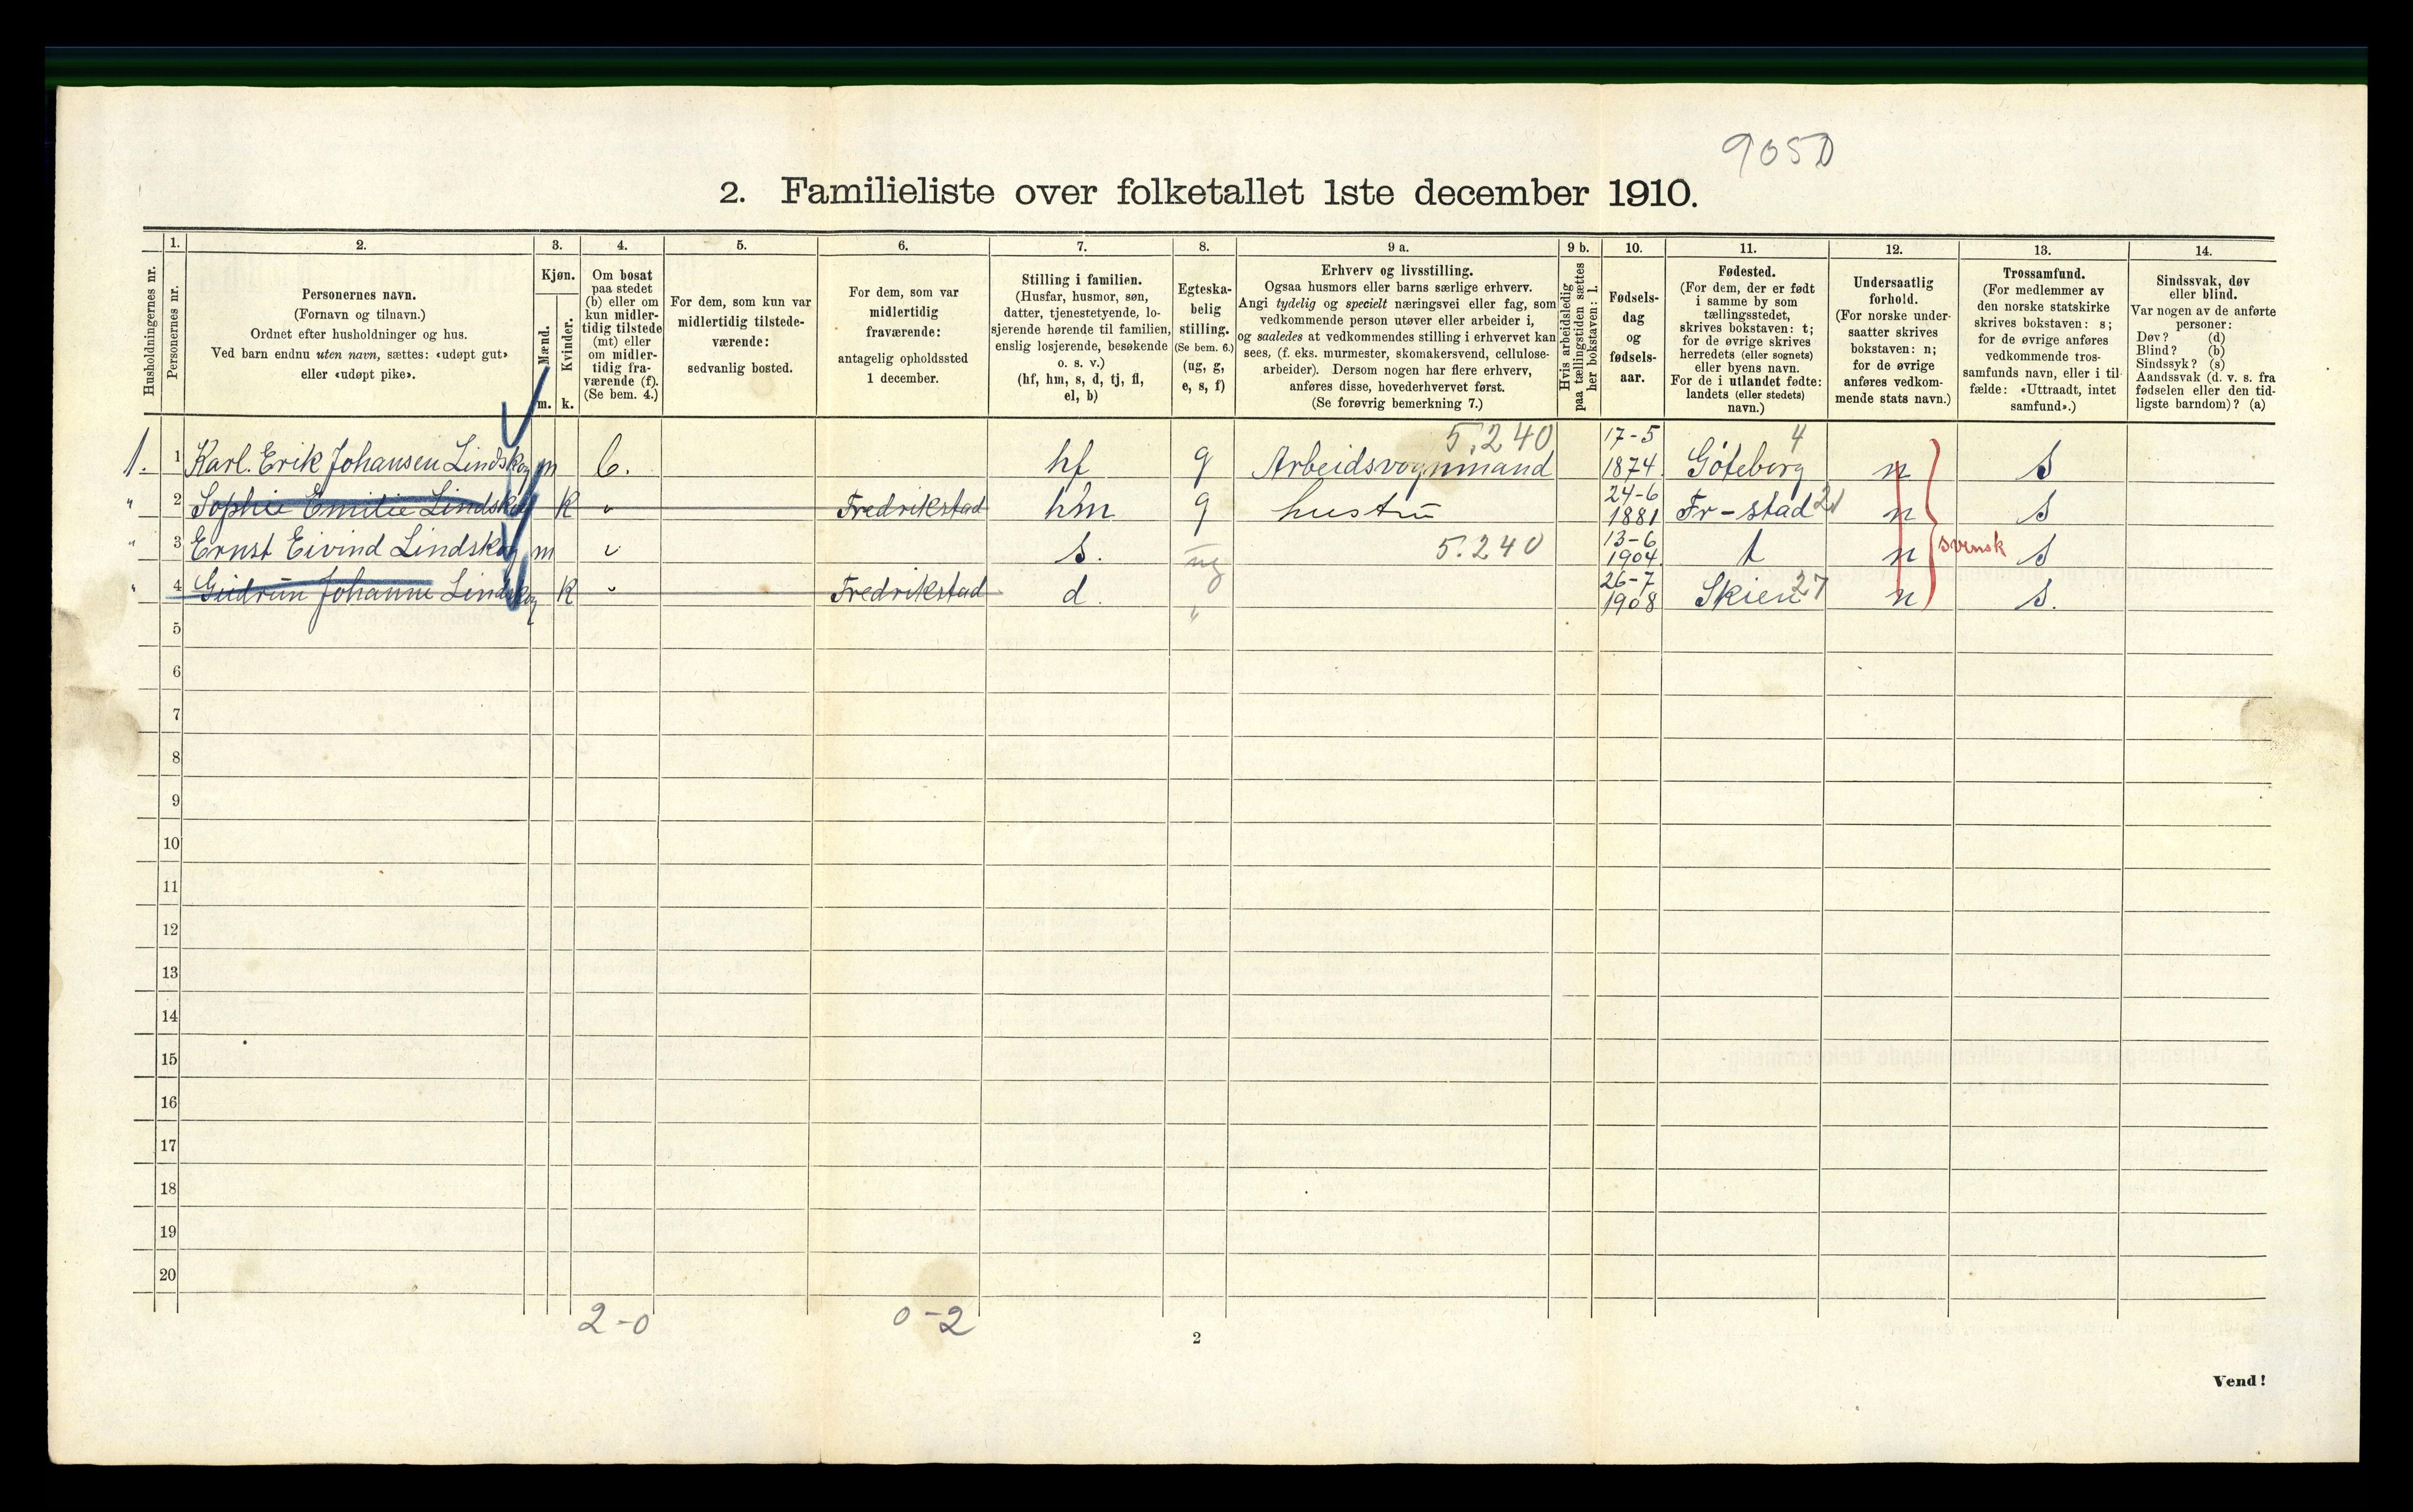 9050
2. Familieliste over folketallet 1ste december 1910.
Husholdningernes nr.
1.
Personernes nr.
2.
Personernes navn.
(Fornavn og tilnavn.)
Ordnet efter husholdninger og hus.
Ved barn endnu uten navn, sættes: «udøpt gut»
eller «udøpt pike».
3.
Kjøn.
Mænd.
Kvinder.
m. k.
4.
Om bosat
paa stedet
(b) eller om
kun midler-
tidig tilstede
(mt) eller
om midler-
tidig fra-
værende (f).
(Se bem. 4.)
5.
For dem, som kun var
midlertidig tilstede-
værende:
sedvanlig bosted.
6.
For dem, som var
midlertidig
fraværende:
antagelig opholdssted
1 december.
7.
Stilling i familien.
(Husfar, husmor, søn,
datter, tjenestetyende, lo-
sjerende hørende til familien,
enslig losjerende, besøkende
o. s. v.)
(hf, hm, s, d, tj, fl,
el, b)
8.
Egteska-
belig
stilling.
(Se bem. 6.)
(ug, g,
e, s, f)
9 a.
Erhverv og livsstilling.
Ogsaa husmors eller barns særlige erhverv.
Angi tydelig og specielt næringsvei eller fag, som
vedkommende person utøver eller arbeider i,
og saaledes at vedkommendes stilling i erhvervet kan
sees, (f. eks. murmester, skomakersvend, cellulose-
arbeider). Dersom nogen har flere erhverv,
anføres disse, hovederhvervet først.
(Se forøvrig bemerkning 7.)
9 b.
Hvis arbeidsledig
paa tællingstiden sættes
her bokstaven: l.
10.
Fødsels-
dag
og
fødsels-
aar.
11.
Fødested.
(For dem, der er født
i samme by som
tællingsstedet,
skrives bokstaven: t;
for de øvrige skrives
herredets (eller sognets)
eller byens navn.
For de i utlandet fødte:
landets (eller stedets)
navn.)
12.
Undersaatlig
forhold.
(For norske under-
saatter skrives
bokstaven: n;
for de øvrige
anføres vedkom-
mende stats navn.)
13.
Trossamfund.
(For medlemmer av
den norske statskirke
skrives bokstaven: s;
for de øvrige anføres
vedkommende tros-
samfunds navn, eller i til-
fælde: «Uttraadt, intet
samfund».)
14.
Sindssvak, døv
eller blind.
Var nogen av de anførte
personer:
Døv? (d)
Blind? (b)
Sindssyk? (s)
Aandssvak (d. v. s. fra
fødselen eller den tid-
ligste barndom)? (a)
5.240 17-5 4
1. 1 Karl. Erik Johansen Lindskog m b. hf g Arbeidsvognmand 1874 Göteborg n s
" 2 Sophie Emilie Lindskog k " Fredrikstad hm g hustru 24-6 1881 Fr-stad 21 n s
" 3 Ernst Eivind Lindskog m " s. ug 5.240 13-6 1904 t n svensk s
" 4 Gudrun Johanne Lindskog k " Fredrikstad d. " 26-7 1908 Skien 27 n s.
5
6
7
8
9
10
11
12
13
14
15
16
17
18
19
20
2-0 0-2
2
Vend!